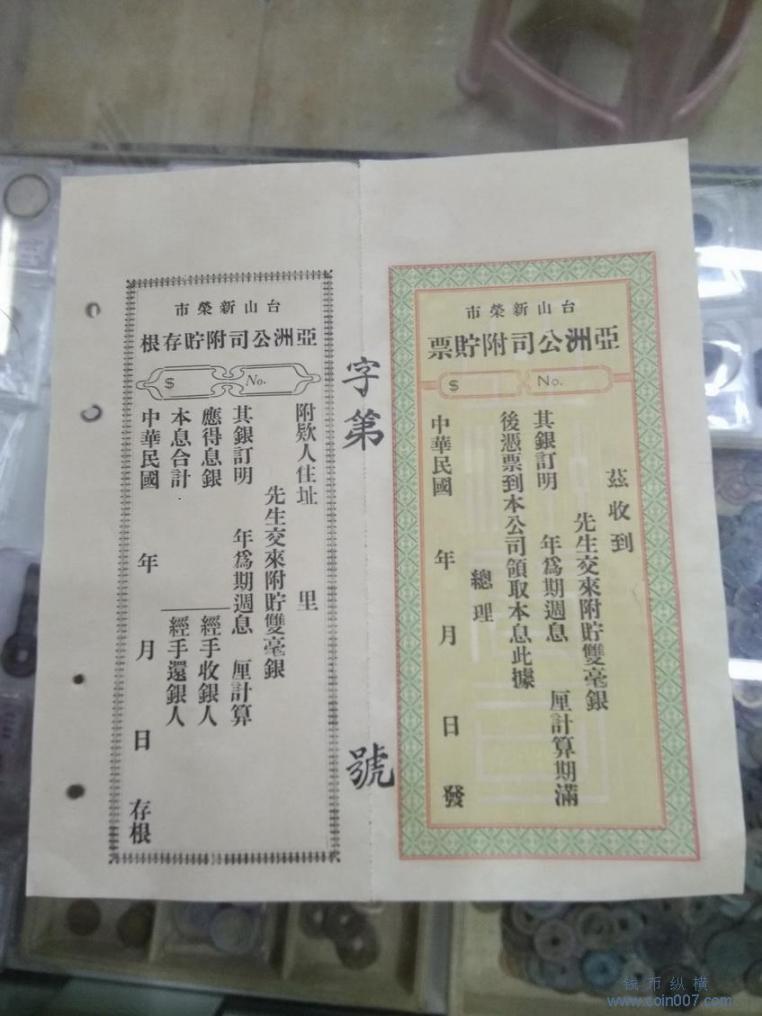 台山新榮市
亞洲公司附貯票
$ No.
茲收到
先生交來附貯雙毫銀
其銀訂明 年爲期週息 厘計算期滿
後憑票到本公司領取本息此據
總理
中華民國 年 月 日 發
字第 號
台山新榮市
亞洲公司附貯存根
$ No.
附欵人住址 里
先生交來附貯雙毫銀
其銀訂明 年爲期週息 厘計算
應得息銀 經手收銀人
本息合計 經手還銀人
中華民國 年 月 日 存根
钱币纵横
www.coin007.com